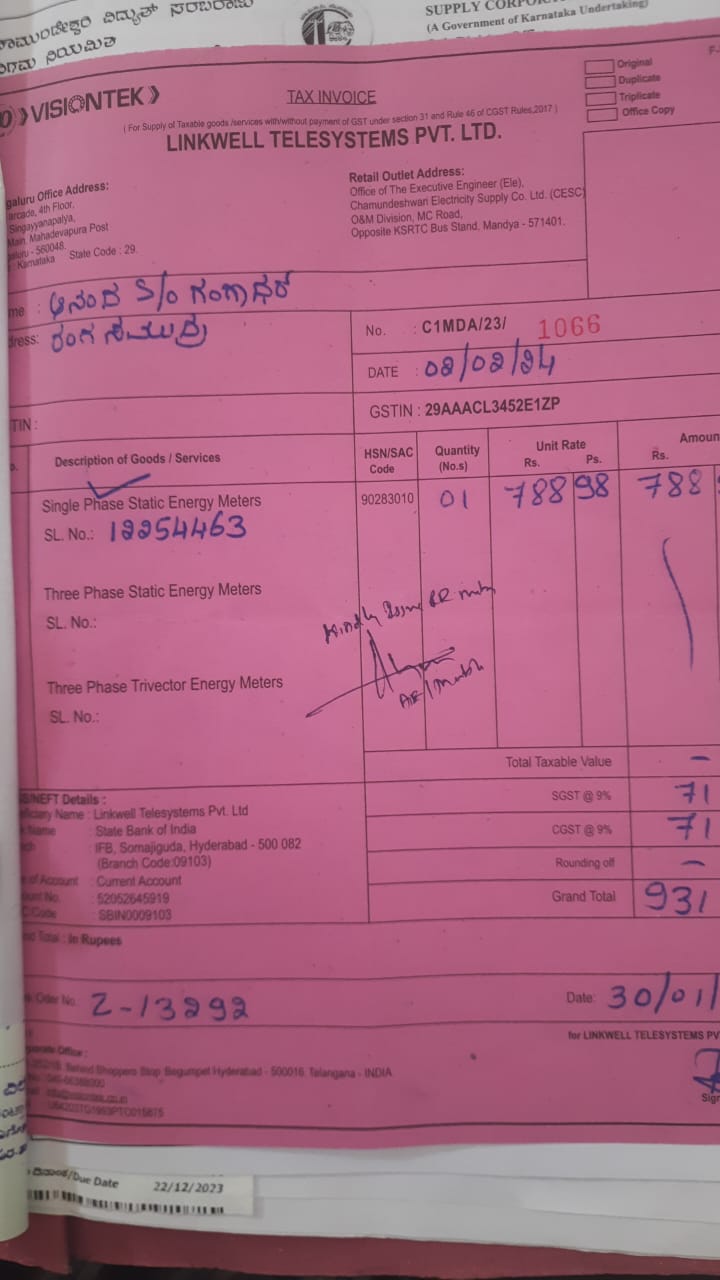 ಚಾಮುಂಡೇಶ್ವರಿ ವಿದ್ಯುತ್ ಸರಬರಾಜು
ನಿಗಮ ನಿಯಮಿತ
SUPPLY CORPOR
(A Government of Karnataka Undertaking)
VISIONTEK
TAX INVOICE
Original
Duplicate
Triplicate
Office Copy
( For Supply of Taxable goods /services with/without payment of GST under section 31 and Rule 46 of CGST Rules,2017 )
LINKWELL TELESYSTEMS PVT. LTD.
galuru Office Address:
arcade, 4th Floor,
Singayyanapalya,
Main, Mahadevapura Post
aluru - 560048.
Karnataka State Code : 29.
Retail Outlet Address:
Office of The Executive Engineer (Ele),
Chamundeshwari Electricity Supply Co. Ltd. (CESC)
O&M Division, MC Road,
Opposite KSRTC Bus Stand, Mandya - 571401.
me : ಆನಂದ S/o ಗಂಗಾಧರ
dress: ರಂಗಸಮುದ್ರ
No. : C1MDA/23/ 1066
DATE : 02/02/24
TIN :
GSTIN : 29AAACL3452E1ZP
Description of Goods / Services
HSN/SAC Code
Quantity (No.s)
Unit Rate
Rs. Ps.
Amoun
Rs.
Single Phase Static Energy Meters 90283010 01 788 98 788
SL. No.: 12254463
Three Phase Static Energy Meters
SL. No.:
Kindly Issue RR
Three Phase Trivector Energy Meters
SL. No.:
Total Taxable Value -
SGST @ 9% 71
CGST @ 9% 71
Rounding off -
Grand Total 931
NEFT Details :
ficiary Name : Linkwell Telesystems Pvt. Ltd
Name : State Bank of India
: IFB, Somajiguda, Hyderabad - 500 082
(Branch Code:09103)
of Account : Current Account
ount No. : 52052645919
Code : SBIN0009103
nd Total : In Rupees
Oder No. Z-13292
Date: 30/01/
for LINKWELL TELESYSTEMS PV
Office :
Behind Shoppers Stop Begumpet Hyderabad - 500016. Telangana - INDIA
Sign
/Due Date 22/12/2023